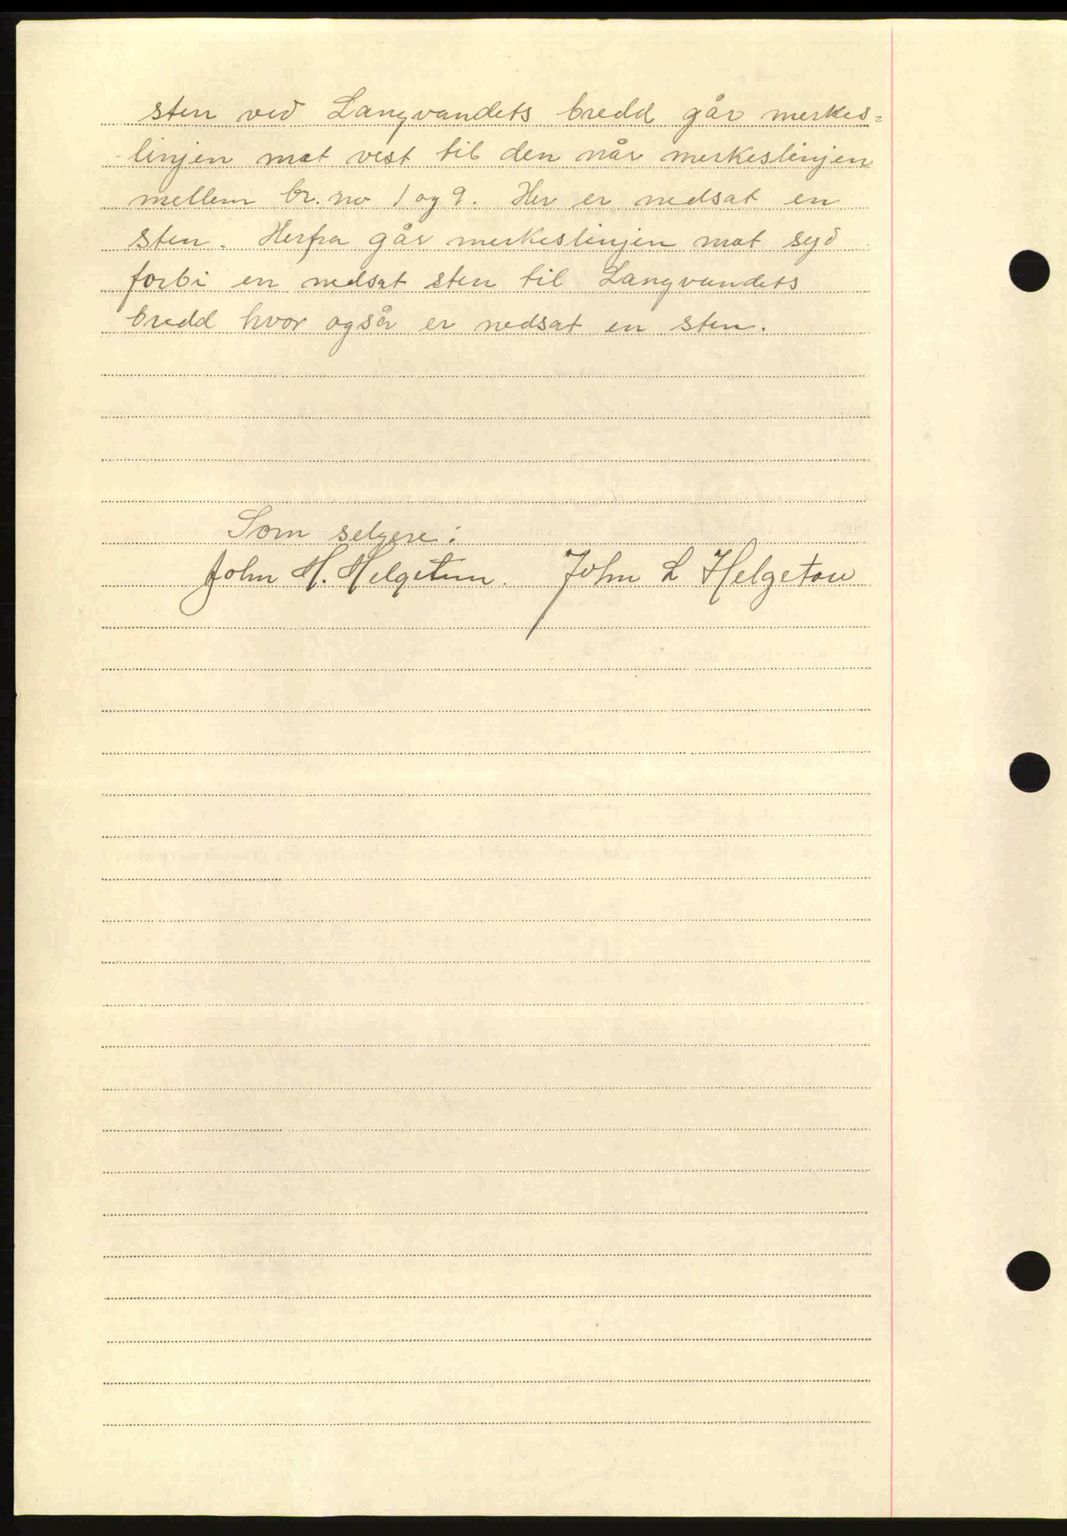 sten ved Langvandets bredd går merkes=
linjen mot vest til den når merkeslinjen
mellem br. no 1 og 9. Her er nedsat en
sten. Herfra går merkeslinjen mot syd
forbi en nedsat sten til Langvandets
bredd hvor også er nedsat en sten.
Som selgere:
John H. Helgetun. John L Helgetun